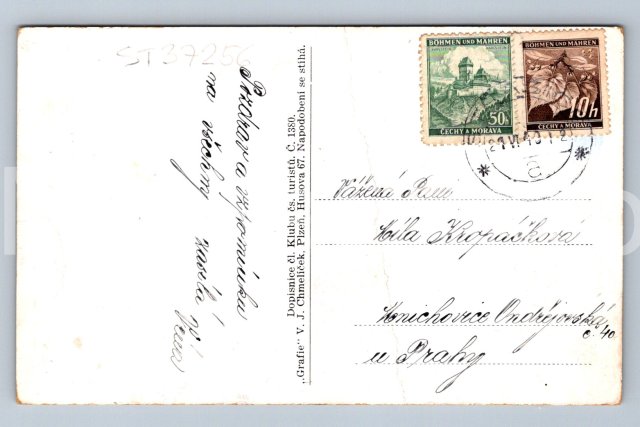 ST37256
Pozdrav a vzpomínku
na všechny zasílá
Dopisnice čl. Klubu čs. turistů. Č. 1380.
„Grafie" V. J. Chmelíček, Plzeň, Husova 67. Napodobení se stíhá.
BÖHMEN UND MÄHREN
50h
ČECHY A MORAVA
BÖHMEN UND MÄHREN
10h
ČECHY A MORAVA
Vážená Paní
Míla Kropáčková
Mnichovice Ondřejovská
č. 40
u Prahy